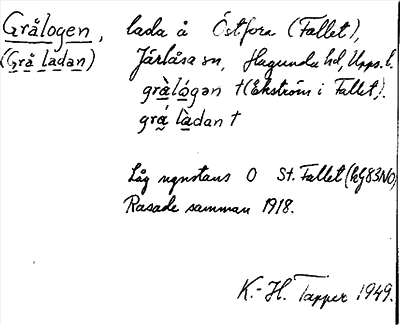 Grålogen, lada å Östfora (Fallet),
(Grå ladan) Järlåsa sn, Hagunda hd, Upps. l.
grå̀lógən †(Ekström i Fallet).
grá̊ làdan †
Låg ngnstans O St. Fallet (hG83NO)
Rasade samman 1918.
K.-H. Tapper 1949.